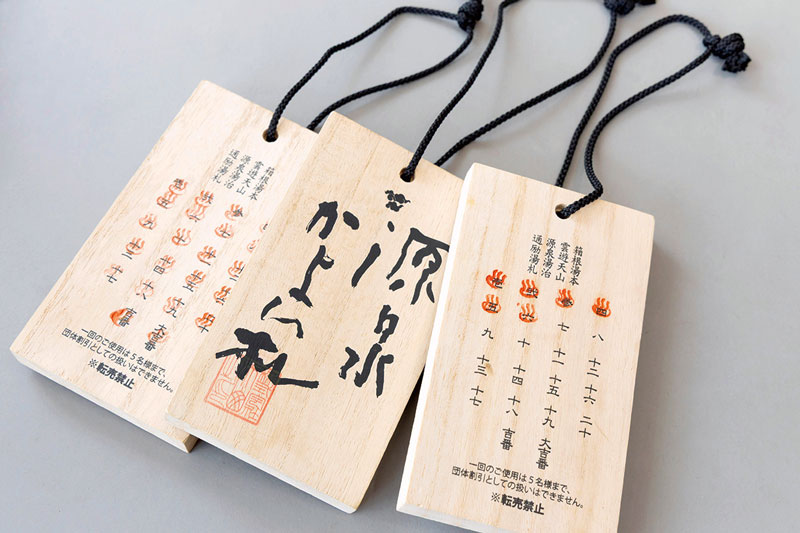 箱根湯本
雲遊天山
源泉湯治
通励湯札
九 十三 十七
十四 十八 吉番
十五 十九 大吉番
一回のご使用は5名様まで、
団体割引としての扱いはできません。
※転売禁止
源泉
かよい札
箱根湯本
雲遊天山
源泉湯治
通励湯札
四 八 十二 十六 二十
参 七 十一 十五 十九 大吉番
弐 六 十 十四 十八 吉番
壱 五 九 十三 十七
一回のご使用は5名様まで、
団体割引としての扱いはできません。
※転売禁止